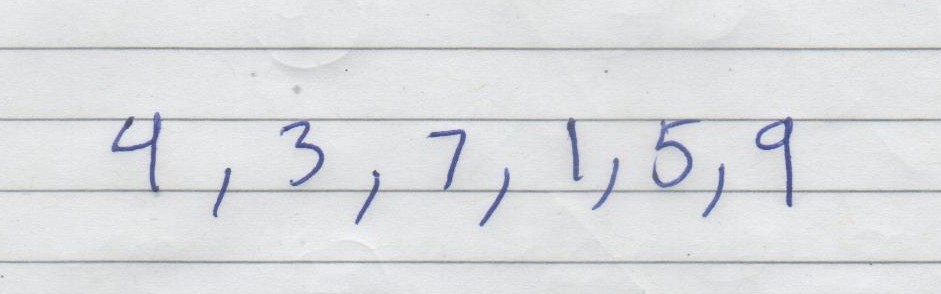 4, 3, 7, 1, 5, 9